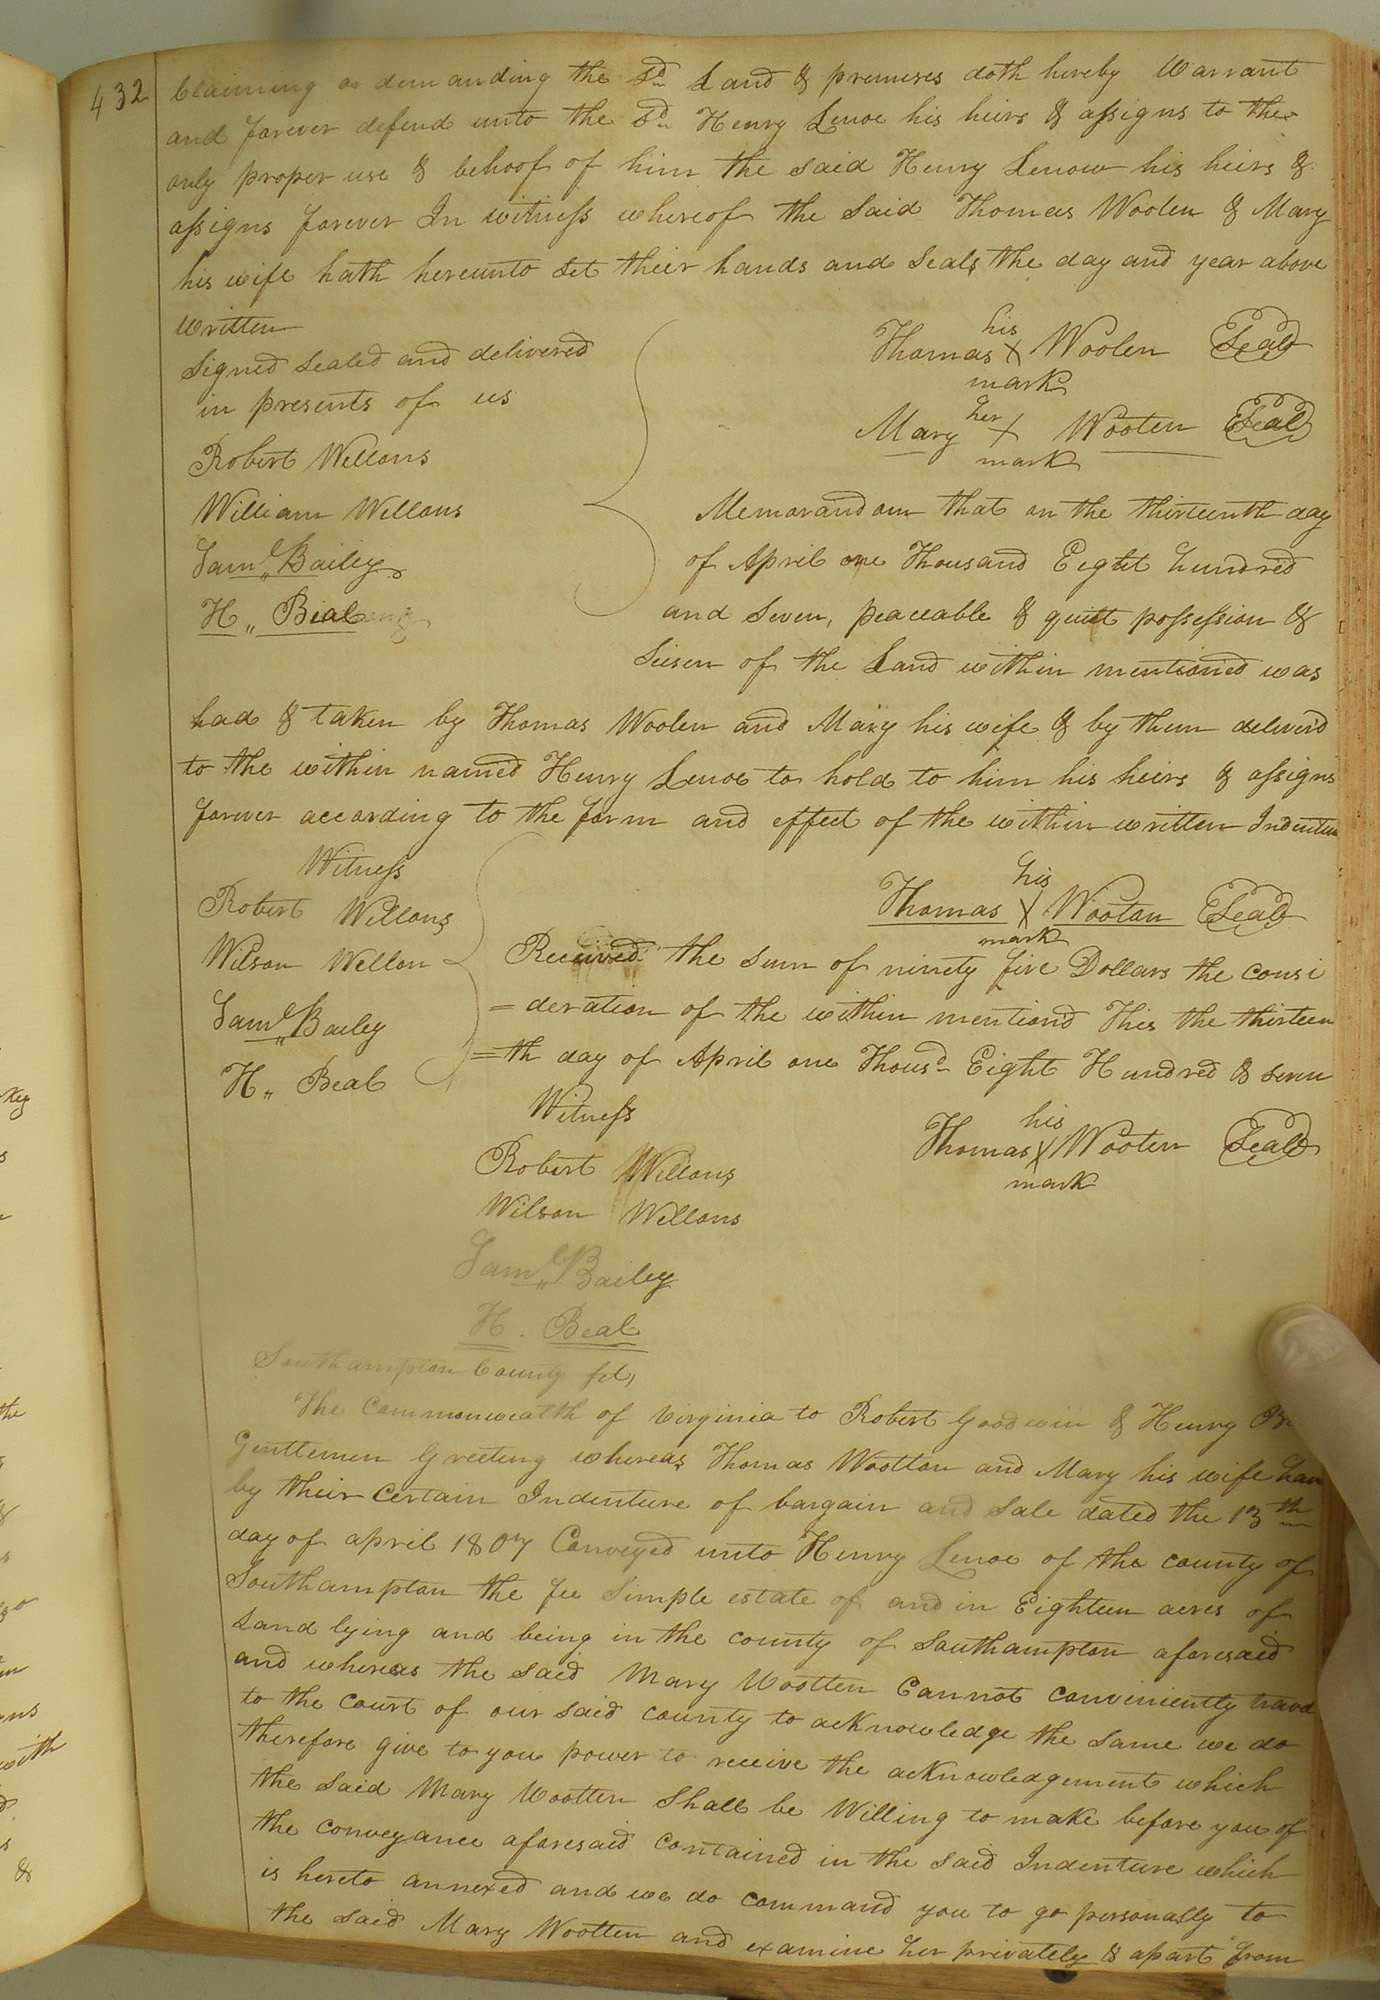 432
Claiming or demanding the sd. Land & premises doth hereby Warrant
and forever defend unto the sd. Henry Lenoe his heirs & assigns to the
only proper use & behoof of him the said Henry Lenow his heirs &
assigns forever In witness whereof the said Thomas Woolen & Mary
his wife hath hereunto set their hands and Seals the day and year above
written
Signed Sealed and delivered
in presents of us
Robert Wellons
William Wellons
Saml. Bailey
H,, Beal
his
Thomas X Woolen Seal
mark
her
Mary X Wooten Seal
mark
Memorandum that on the thirteenth day
of April one Thousand Eight hundred
and Seven, peaceable & quiett possession &
Seisen of the Land within mentioned was
had & taken by Thomas Woolen and Mary his wife & by them deliver'd
to the within named Henry Lenoe to hold to him his heirs & assigns
forever according to the form and effect of the within written Indenture
Witness
Robert Wellons
Wilson Wellon
Saml. Bailey
H,, Beal
his
Thomas X Wootan Seal
mark
Received the sum of ninety five Dollars the consi
=deration of the within mentiond This the thirteen
=th day of April one Thousd. Eight Hundred & seven
Witness
Robert Wellons
Wilson Wellons
Saml. Bailey
H. Beal
his
Thomas X Wooten Seal
mark
Southampton County Sct,
The Commonwealth of Virginia to Robert Goodwin & Henry
Gentlemen Greeting whereas Thomas Wootton and Mary his wife have
by their certain Indenture of bargain and Sale dated the 13th
day of april 1807 Conveyed unto Henry Lenoe of the county of
Southampton the fee Simple estate of and in Eighteen acres of
Land lying and being in the county of Southampton aforesaid
and whereas the said Mary Wootten Cannot conveniently travel
to the court of our said county to acknowledge the same we do
therefore give to you power to receive the acknowledgement which
the said Mary Wootten Shall be Willing to make before you of
the conveyance aforesaid contained in the said Indenture which
is hereto annexed and we do command you to go personally to
the said Mary Wootten and examine her privately & apart from